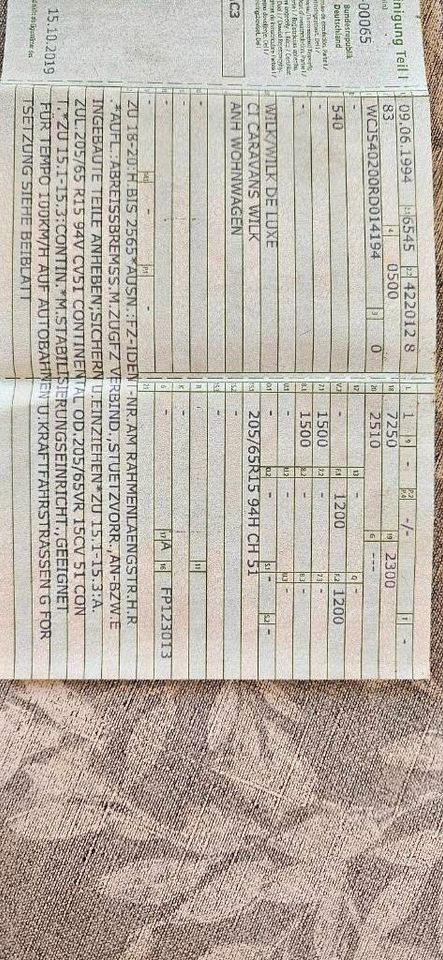 inigung Teil I
00065
Bundesrepublik
Deutschland
C3
15.10.2019
09.06.1994 2.1 6545 2.2 422012 8
83 4 0500
WCI540200RD014194 3 0
540
WILK/WILK DE LUXE
CI CARAVANS WILK
ANH WOHNWAGEN
L 1 9 - P.2 P.4 -/- T -
18 7250 19 2300
20 2510 G ---
12 - 13 - Q -
V.7 - F.1 1200 F.2 1200
7.1 1500 7.2 - 7.3 -
8.1 1500 8.2 - 8.3 -
U.1 - U.2 - U.3 -
O.1 - O.2 - S.1 - S.2 -
15.1 205/65R15 94H CH 51
15.2 -
15.3 -
R - 11 -
K -
6 - 17 A 16 FP123013
21 -
ZU 18-20:H.BIS 2565*AUSN.:FZ-IDENT-NR.AM RAHMENLAENGSTR.H.R
*AUFL.:ABREISSBREMSS.M.ZUGFZ VERBIND.,STUETZVORR.,AN-BZW.E
INGEBAUTE TEILE ANHEBEN,SICHERN U.EINZIEHEN*ZU 15.1-15.3:A.
ZUL.205/65 R15 94V CV51 CONTINENTAL OD.205/65VR 15CV 51 CON
T.*ZU 15.1-15.3:CONTIN.*M.STABILISIERUNGSEINRICHT.,GEEIGNET
FÜR TEMPO 100KM/H AUF AUTOBAHNEN U.KRAFTFAHRSTRASSEN G FOR
TSETZUNG SIEHE BEIBLATT